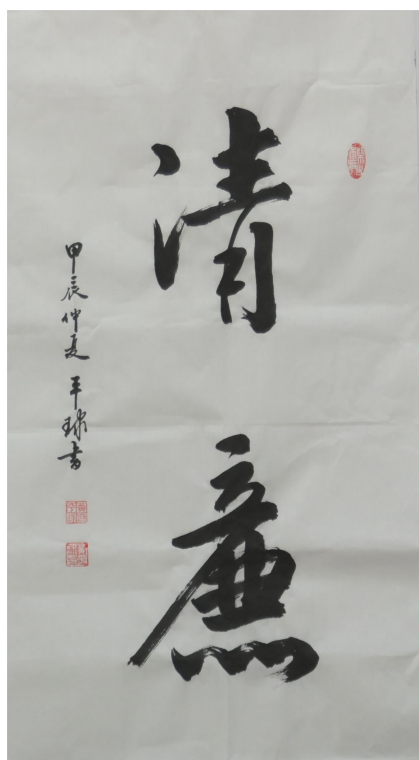 清廉
甲辰仲夏 平球書